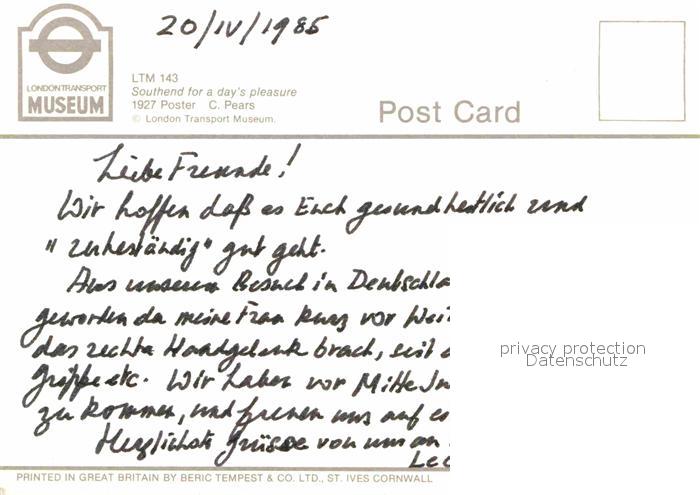 20/IV/1985
LONDON TRANSPORT
MUSEUM
LTM 143
Southend for a day's pleasure
1927 Poster C. Pears
© London Transport Museum.
Post Card
Liebe Freunde!
Wir hoffen daß es Euch gesundheitlich und
gut geht.
Aus unserem Besuch in Deutschla
geworden da meine Frau kurz vor Wei
das rechte Handgelenk brach, seit
Grippe etc. Wir haben vor Mitte Ju
zu kommen, und freuen uns auf es
Herzlichste Grüsse von uns an
privacy protection
Datenschutz
PRINTED IN GREAT BRITAIN BY BERIC TEMPEST & CO. LTD., ST. IVES CORNWALL